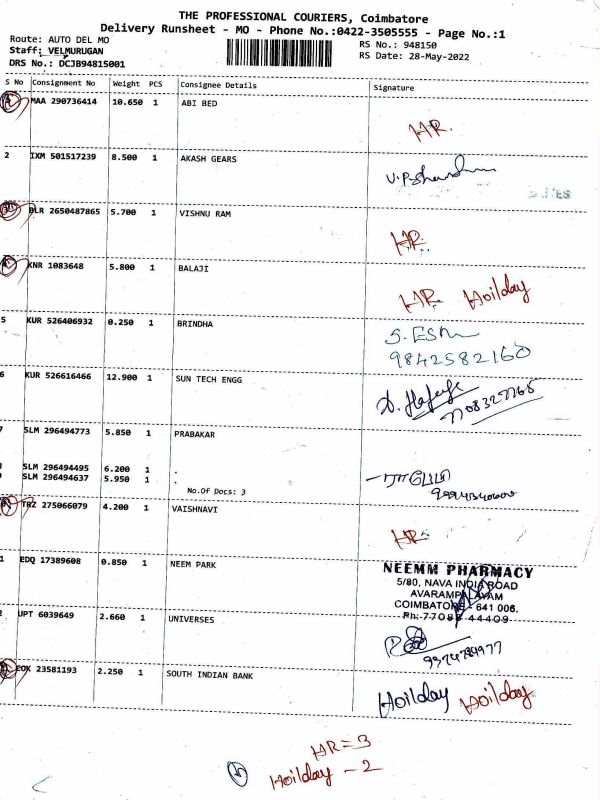 THE PROFESSIONAL COURIERS, Coimbatore
Delivery Runsheet - MO - Phone No.:0422-3505555 - Page No.:1
Route: AUTO DEL MO
Staff: VELMURUGAN
DRS No.: DCJB94815001
RS No.: 948150
RS Date: 28-May-2022
S No Consignment No Weight PCS Consignee Details Signature
MAA 290736414 10.650 1 ABI BED HR.
2 IXM 501517239 8.500 1 AKASH GEARS
BLR 2650487865 5.700 1 VISHNU RAM HR
KNR 1083648 5.800 1 BALAJI HR Hoilday
5 KUR 526406932 0.250 1 BRINDHA
9842582160
6 KUR 526616466 12.900 1 SUN TECH ENGG
7708327765
7 SLM 296494773 5.850 1 PRABAKAR
SLM 296494495 6.200 1 .
9 SLM 296494637 5.950 1 .
No.Of Docs: 3
TRZ 275066079 4.200 1 VAISHNAVI HR
1 EDQ 17389608 0.850 1 NEEM PARK
NEEMM PHARMACY
5/80, NAVA INDIA ROAD
AVARAMPALAYAM
COIMBATORE - 641 006.
Ph: 77088 44409
UPT 6039649 2.660 1 UNIVERSES
EOK 23581193 2.250 1 SOUTH INDIAN BANK Hoilday Hoilday
HR = 3
Hoilday - 2